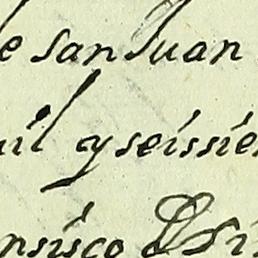 e San Juan
il y seissie
nsisco